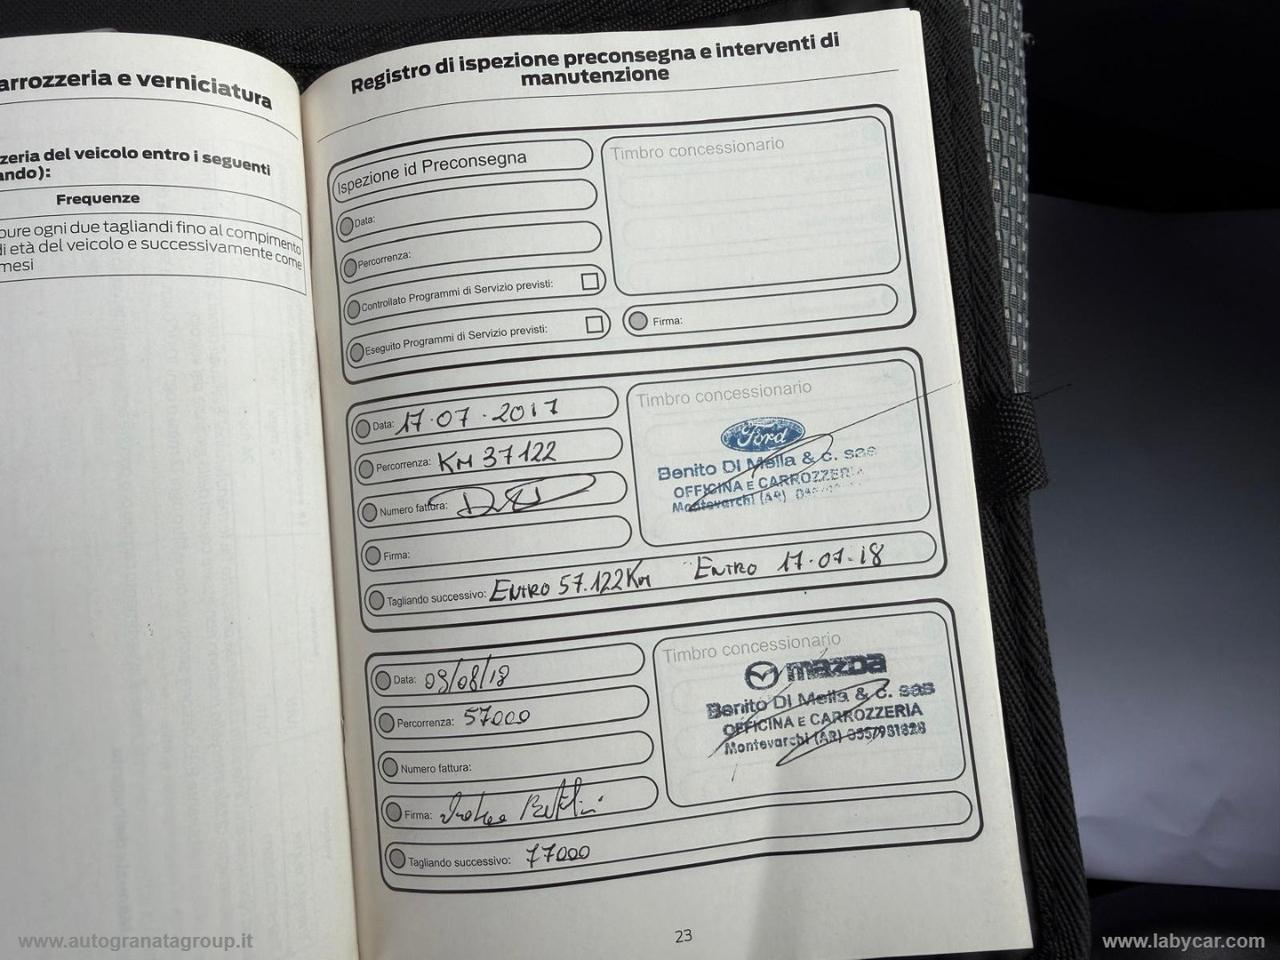 arrozzeria e verniciatura
zeria del veicolo entro i seguenti
ando):
Frequenze
pure ogni due tagliandi fino al compimento
di età del veicolo e successivamente come
mesi
Registro di ispezione preconsegna e interventi di
manutenzione
Ispezione id Preconsegna
Data:
Percorrenza:
Controllato Programmi di Servizio previsti:
Eseguito Programmi di Servizio previsti:
Timbro concessionario
Firma:
Data: 17.07.2017
Percorrenza: KM 37122
Numero fattura:
Firma:
Tagliando successivo: ENTRO 57.122 Km ENTRO 17.07.18
Timbro concessionario
Ford
Benito Di Mella & C. sas
OFFICINA E CARROZZERIA
Montevarchi (AR)
Data: 09/08/18
Percorrenza: 57000
Numero fattura:
Firma:
Tagliando successivo: 77000
Timbro concessionario
mazda
Benito Di Mella & C. sas
OFFICINA E CARROZZERIA
Montevarchi (AR)
23
www.autogranatagroup.it
www.labycar.com